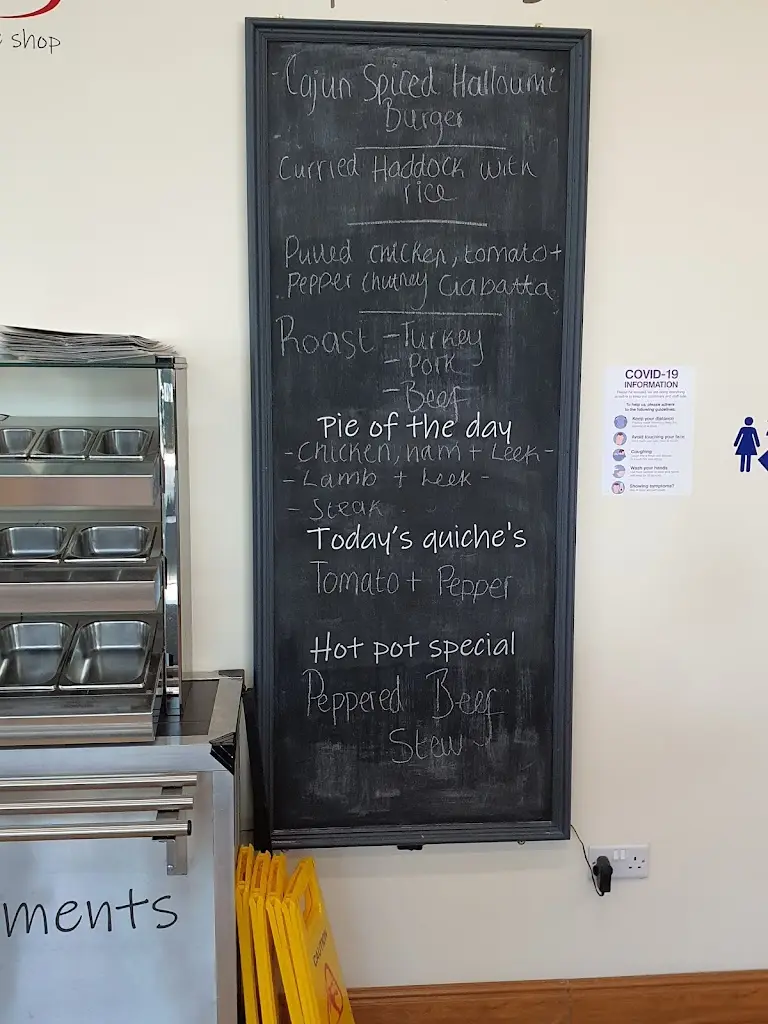 shop
- Cajun Spiced Halloumi
Burger
Curried Haddock with
rice
Pulled chicken, tomato +
Pepper chutney Ciabatta
Roast - Turkey
- Pork
- Beef
Pie of the day
- Chicken, ham + Leek -
- Lamb + Leek -
- Steak
Today's quiche's
Tomato + Pepper
Hot pot special
Peppered Beef
Stew
COVID-19
INFORMATION
To help us, please adhere
to the following guidelines:
Keep your distance
Avoid touching your face
Coughing
Wash your hands
Showing symptoms?
ments
CAUTION